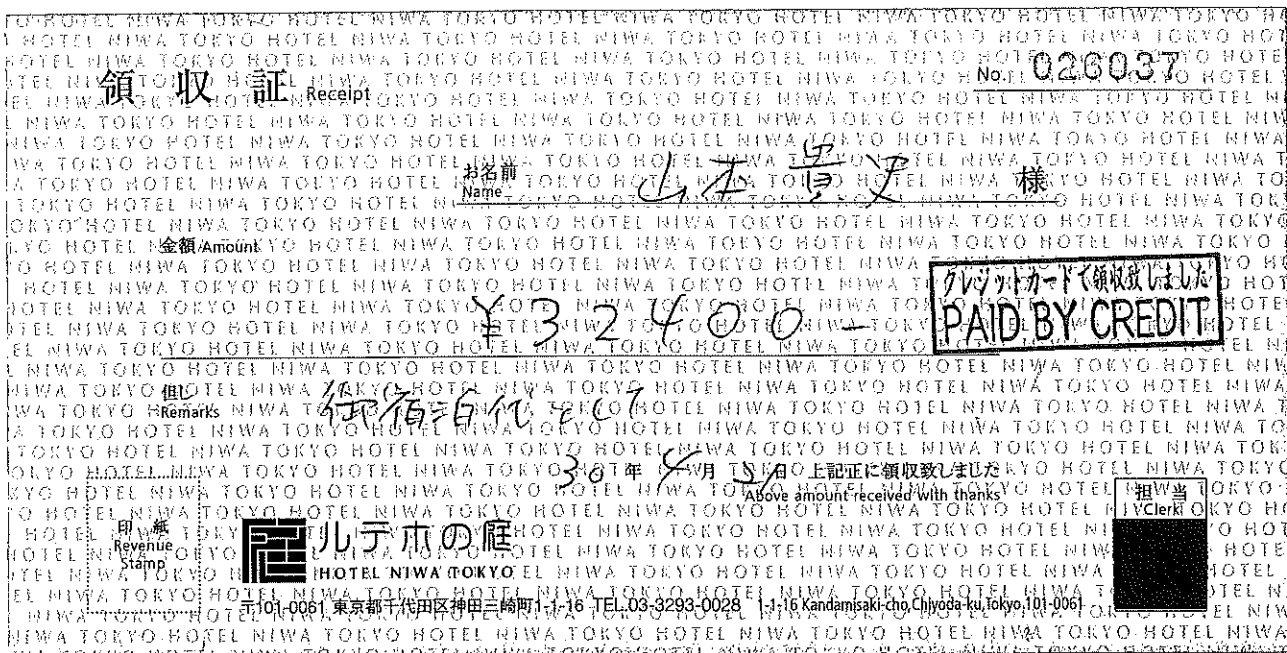 領収証 Receipt
No. 026037
お名前 Name 山本貴史 様
金額/Amount
¥32400-
クレジットカードで領収致しました
PAID BY CREDIT
但し Remarks 御宿泊代として
上記正に領収致しました
30年4月 日
Above amount received with thanks
担当 Clerk
印紙
Revenue
Stamp
ルテホの庭
HOTEL NIWA TOKYO
〒101-0061 東京都千代田区神田三崎町1-1-16 TEL.03-3293-0028 1-1-16 Kandamisaki-cho,Chiyoda-ku,Tokyo,101-0061